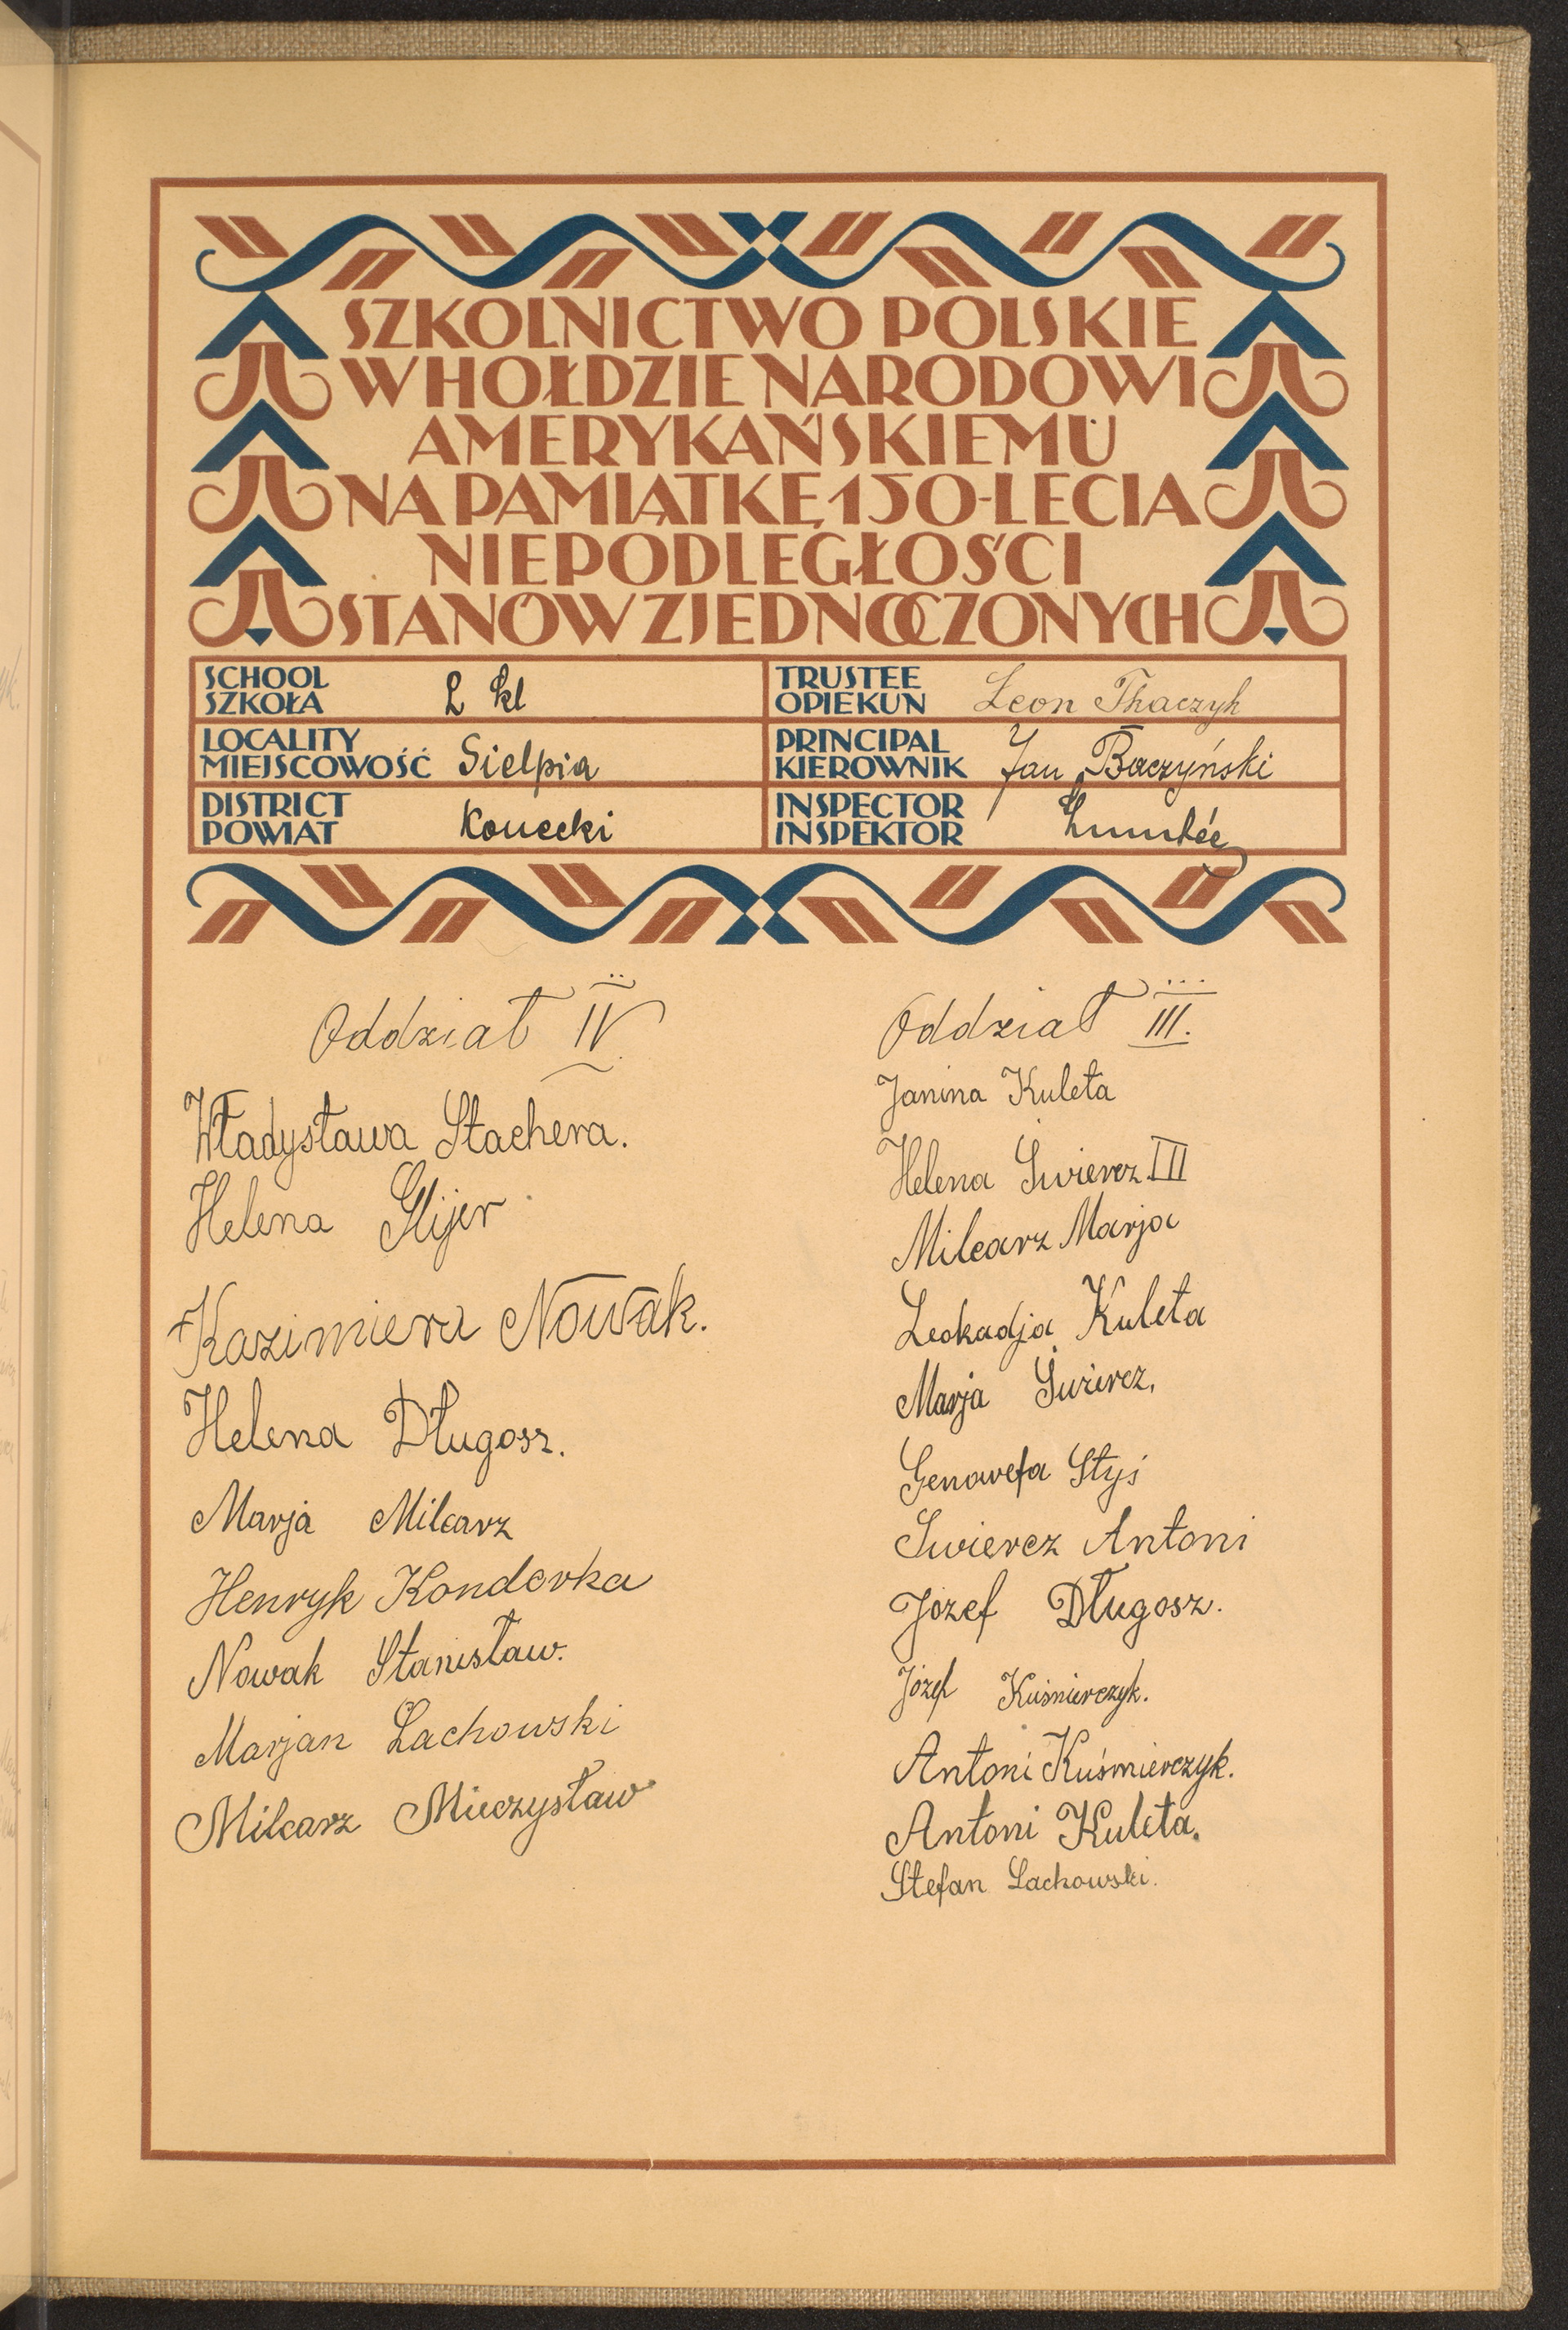 SZKOLNICTWO POLSKIE
W HOŁDZIE NARODOWI
AMERYKAŃSKIEMU
NA PAMIĄTKĘ 150-LECIA
NIEPODLEGŁOŚCI
STANÓW ZJEDNOCZONYCH
SCHOOL
SZKOŁA 2 kl
TRUSTEE
OPIEKUN Leon Tkaczyk
LOCALITY
MIEJSCOWOŚĆ Sielpia
PRINCIPAL
KIEROWNIK Jan Baczyński
DISTRICT
POWIAT Konecki
INSPECTOR
INSPEKTOR
Oddział IV.
Władysława Stachera.
Helena Slijer
Kazimiera Nowak.
Helena Długosz.
Marja Milcarz
Henryk Konderka
Nowak Stanisław.
Marjan Lachowski
Milcarz Mieczysław
Oddział III.
Janina Kuleta
Helena Swiercz III
Milcarz Marja
Leokadja Kuleta
Marja Świercz.
Genowefa Styś
Swiercz Antoni
Józef Długosz.
Józef Kuśmierczyk.
Antoni Kuśmierczyk.
Antoni Kuleta.
Stefan Lachowski.